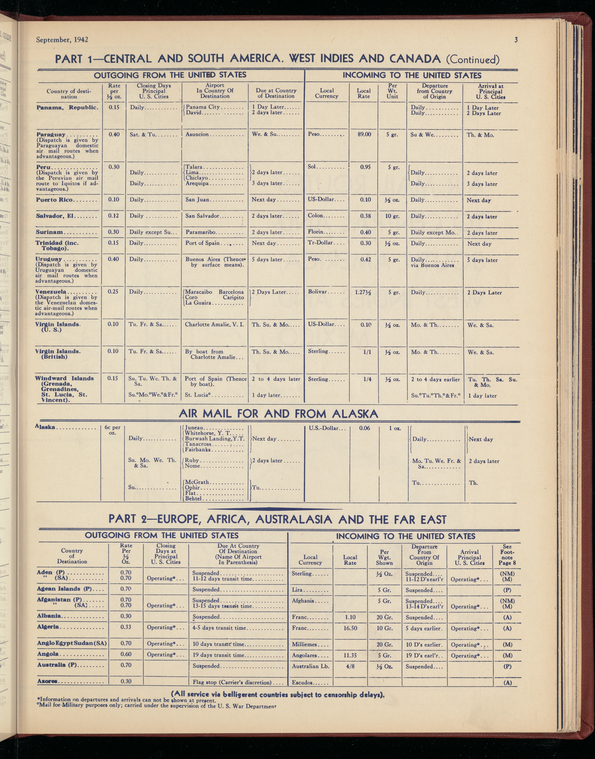 September, 1942 3
PART 1—CENTRAL AND SOUTH AMERICA. WEST INDIES AND CANADA (Continued)
OUTGOING FROM THE UNITED STATES INCOMING TO THE UNITED STATES
Country of desti-nation Rate per ½ oz. Closing Days Principal U. S. Cities Airport In Country Of Destination Due at Country of Destination Local Currency Local Rate Per Wt. Unit Departure from Country of Origin Arrival at Principal U. S. Cities
Panama, Republic. 0.15 Daily Panama City 1 Day Later Daily 1 Day Later
David 2 days later Daily 2 Days Later
Paraguay 0.40 Sat. & Tu. Asuncion We. & Su. Peso 89.00 5 gr. Su & We. Th. & Mo.
(Dispatch is given by
Paraguayan domestic
air mail routes when
advantageous.)
Peru 0.30 Talara Sol 0.95 5 gr.
(Dispatch is given by Daily Lima 2 days later Daily 2 days later
the Peruvian air mail Chiclayo
route to Iquitos if ad- Daily Arequipa 3 days later Daily 3 days later
vantageous.)
Puerto Rico 0.10 Daily San Juan Next day US-Dollar 0.10 ½ oz. Daily Next day
Salvador, El 0.12 Daily San Salvador 2 days later Colon 0.38 10 gr. Daily 2 days later
Surinam 0.30 Daily except Su. Paramaribo. 2 days later Florin 0.40 5 gr. Daily except Mo. 2 days later
Trinidad (inc. 0.15 Daily Port of Spain Next day Tr-Dollar 0.30 ½ oz. Daily Next day
Tobago).
Uruguay 0.40 Daily Buenos Aires (Thence 5 days later Peso. 0.42 5 gr. Daily 5 days later
(Dispatch is given by by surface means). via Buenos Aires
Uruguayan domestic
air mail routes when
advantageous.)
Venezuela 0.25 Daily Maracaibo Barcelona 2 Days Later Bolivar 1.27½ 5 gr. Daily 2 Days Later
(Dispatch is given by Coro Caripito
the Venezuelan domes- La Guaira
tic air-mail routes when
advantageous.)
Virgin Islands. 0.10 Tu. Fr. & Sa. Charlotte Amalie, V. I. Th. Su. & Mo. US-Dollar 0.10 ½ oz. Mo. & Th. We. & Sa.
(U. S.)
Virgin Islands. 0.10 Tu. Fr. & Sa. By boat from Th. Su. & Mo. Sterling 1/1 ½ oz. Mo. & Th. We. & Sa.
(British) Charlotte Amalie
Windward Islands 0.15 Su. Tu. We. Th. & Port of Spain (Thence 2 to 4 days later Sterling 1/4 ½ oz. 2 to 4 days earlier Tu. Th. Sa. Su.
(Grenada, Sa. by boat). & Mo.
Grenadines,
St. Lucia, St. Su.ºMo.ºWe.º&Fr.º St. Luciaº 1 day later Su.ºTu.ºTh.º&Fr.º 1 day later
Vincent).
AIR MAIL FOR AND FROM ALASKA
Alaska 6c per Juneau U.S.-Dollar 0.06 1 oz.
oz. Whitehorse, Y. T.
Daily Burwash Landing, Y.T. Next day Daily Next day
Tanacross
Fairbanks
Su. Mo. We. Th. Ruby 2 days later Mo. Tu. We. Fr. & 2 days later
& Sa. Nome Sa.
McGrath
Su. Ophir Tu. Tu. Th.
Flat
Bethel
PART 2—EUROPE, AFRICA, AUSTRALASIA AND THE FAR EAST
OUTGOING FROM THE UNITED STATES INCOMING TO THE UNITED STATES
Country of Destination Rate Per ½ Oz. Closing Days at Principal U. S. Cities Due At Country Of Destination (Name Of Airport In Parenthesis) Local Currency Local Rate Per Wgt. Shown Departure From Country Of Origin Arrival Principal U. S. Cities See Foot-note Page 8
Aden (P) 0.70 Suspended Sterling ½ Oz. Suspended (NM)
" (SA) 0.70 Operating* 11-12 days transit time 11-12 D'searl'r Operating* (M)
Agean Islands (P) Lira 5 Gr. (P)
Afganistan (P) 0.70 Suspended Afghanis 5 Gr. Suspended (NM)
" (SA) 0.70 Operating* 13-15 days transit time 13-14 D'searl'r Operating* (M)
Albania 0.30 Suspended Franc 1.10 20 Gr. Suspended (A)
Algeria 0.33 Operating* 4-5 days transit time Franc 16.50 10 Gr. 5 days earlier Operating* (A)
Anglo Egypt Sudan (SA) 0.70 Operating* 10 days transit time Milliemes 20 Gr. 10 D's earlier Operating* (M)
Angola 0.60 Operating* 19 days transit time Angolares 11.35 5 Gr. 19 D's earl'r Operating* (M)
Australia (P) 0.70 Suspended Australian Lb. 4/8 ½ Oz. Suspended (P)
Azores 0.30 Flag stop (Carrier's discretion) Escudos (A)
(All service via belligerent countries subject to censorship delays).
*Information on departures and arrivals can not be shown at present.
ºMail for Military purposes only; carried under the supervision of the U. S. War Department